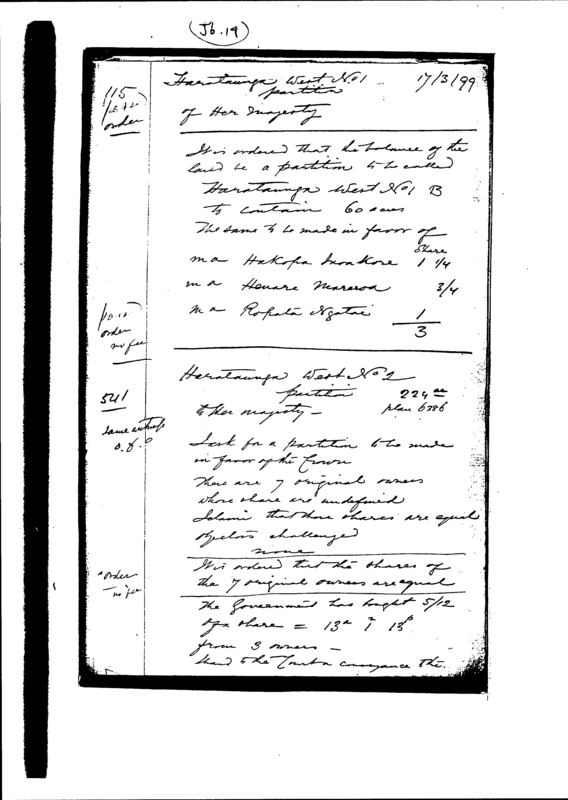 (Jb.19)
Harataunga West No1 17/3/99
partition
of Her Majesty
115
order
It is ordered that the balance of the
land be a partition to be called
Harataunga West No1 B
to contain 60 acres
The same to be made in favor of
Share
m a Hakopa 1 1/4
m a Henare 3/4
m a Ropata Ngatai 1
3
order
no fee
Harataunga West No2
partition 224 ac
to Her Majesty — plan 6786
541
same
I ask for a partition to be made
in favor of the Crown
There are 7 original owners
whose share are undefined
I claim that those shares are equal
objectors challenged
none
It is ordered that the shares of
the 7 original owners are equal
order
no fee
The Government has bought 5/12
of a share = 13a 1r 13p
from 3 owners —
hand to the Court a conveyance the